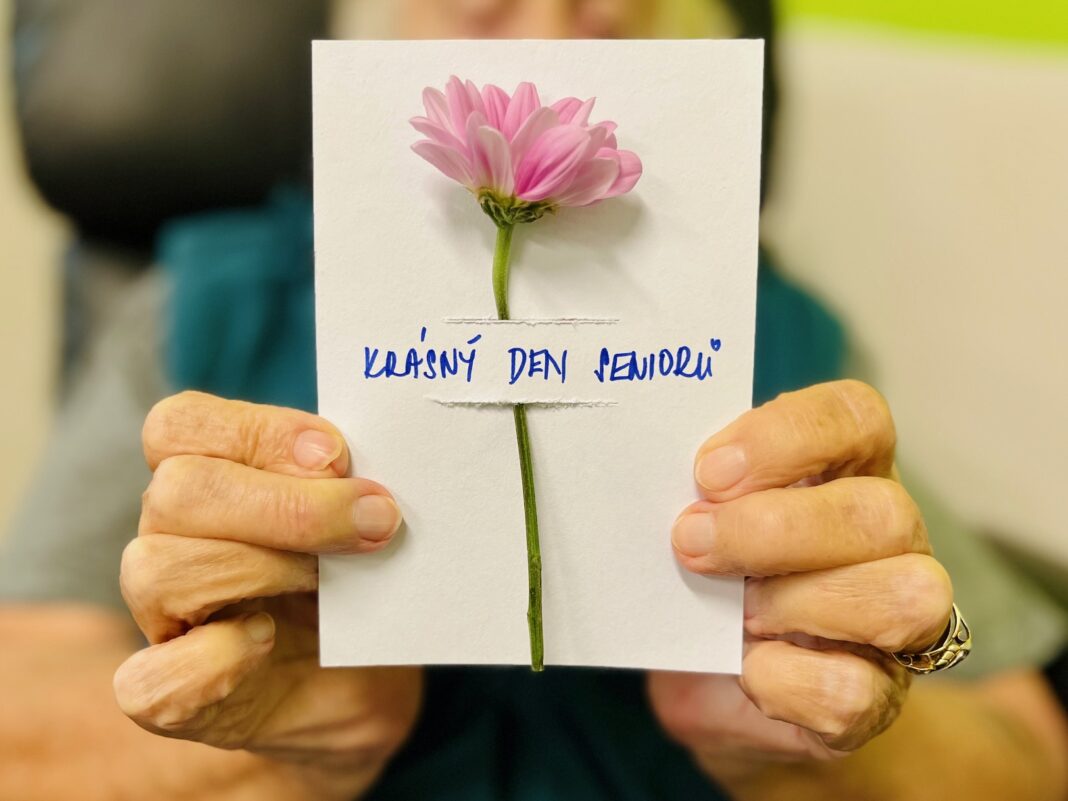 KRÁSNÝ DEN SENIORŮ